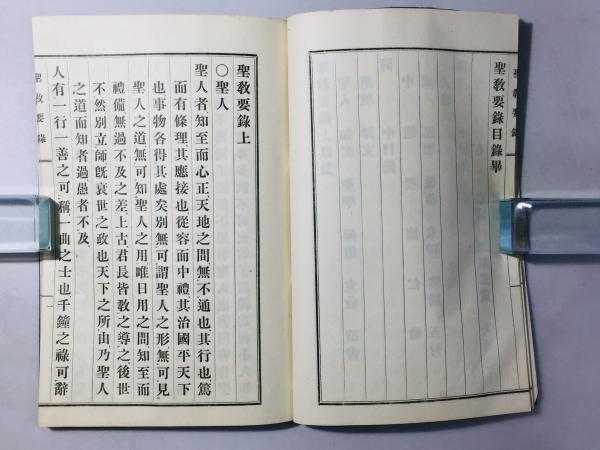 聖教要錄目錄畢
聖教要錄
聖教要錄上
○聖人
聖人者知至而心正天地之間無不通也、其行也篤
而有條理、其應接也從容而中禮、其治國平天下
也、事物各得其處矣、別無可謂聖人之形、無可見
聖人之道、無可知聖人之用、唯日用之間知至而
禮備、無過不及之差、上古君長皆敎之導之、後世
不然、別立師、旣衰世之政也、天下之所由乃聖人
之道、而知者過愚者不及、
人有一行一善之可稱、一曲之士也、千鐘之祿可辭
聖敎要錄
一